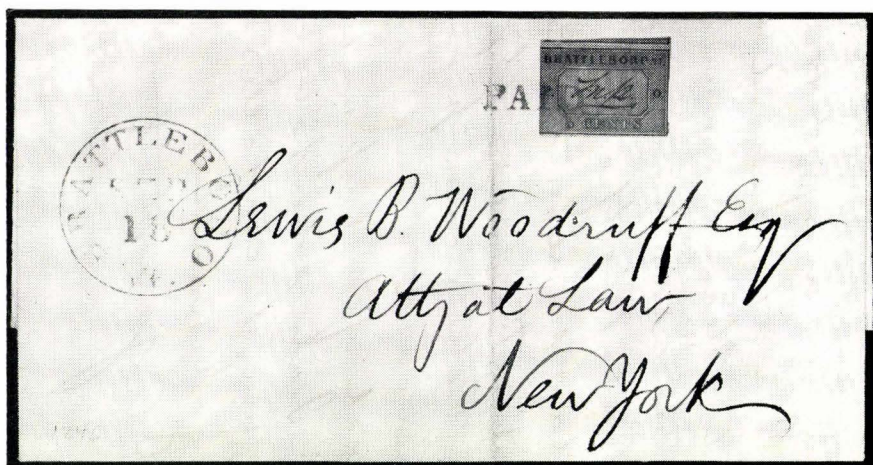 BRATTLEBORO
PAI
5 CENTS
BRATTLEBORO
18
Lewis B. Woodruff Esq
Atty at Law
New York